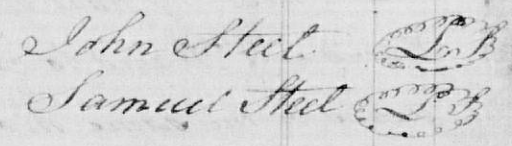 John Steel LnB
Samuel Steel L B